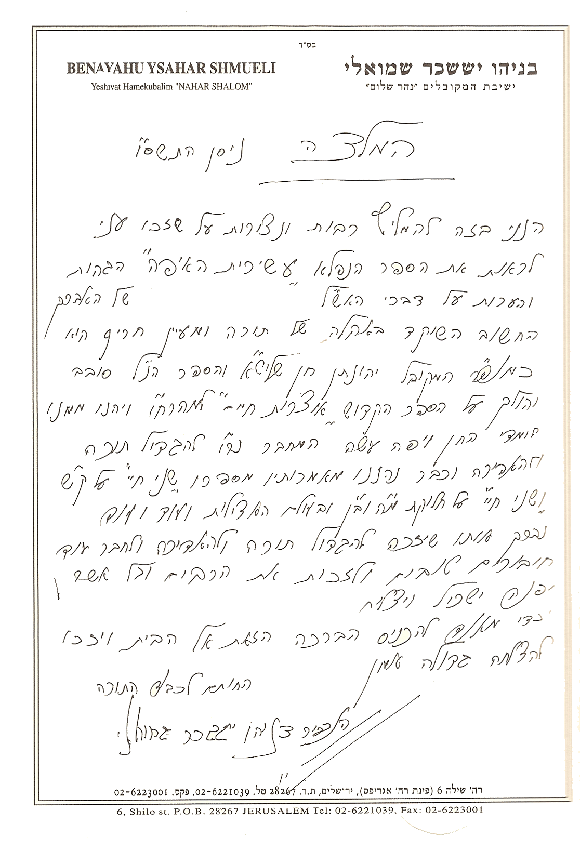 בס״ד
BENAVAHU YSAHAR SHMUELI
בניהו יששכר שמואלי
Yeshivat Hamekubalim "NAHAR SHALOM"
ישיבת המקובלים "נהר שלום"
המלצה
ניסן התשס"ו
הנני בזה להמליץ רבות ונצורות על שזכו עני
לראות את הספר הנפלא "עשירית האיפה" הגהות
והערות על דברי האש"ל של האברך
החשוב השוקד באהלה של תורה ומעיין חריף הוא
המקובל יהונתן חן שליט"א והספר הנ"ל סובב
והולך על הספר הקדוש "אוצרות חיים" למהרח"ו ויהנו ממנו
לומדי החן ויפה עשה המחבר נר"ו להגדיל תורה
ולהאדירה וכבר נהננו מאמרותיו מספרו "שני חיי" על ק"ש
ושני חיי על חלוקת מ"ה וב"ן ובעולם האצילות ועוד ועוד
אותו שיזכה להגדיל תורה ולהאדירה ולחבר עוד
חיבורים טובים ולזכות את הרבים וכל אשר
יפנה ישכיל ויצליח
כדי להכניס הברכה הזאת אל הבית ויזכו
להצלחה גדולה אמן
החותם לכבוד התורה
רח' שילה 6 (פינת רח' אגריפס), ירושלים, ת.ד. 28267 טל. 02-6221039, פקס. 02-6223001
6, Shilo st. P.O.B. 28267 JERUSALEM Tel: 02-6221039, Fax: 02-6223001